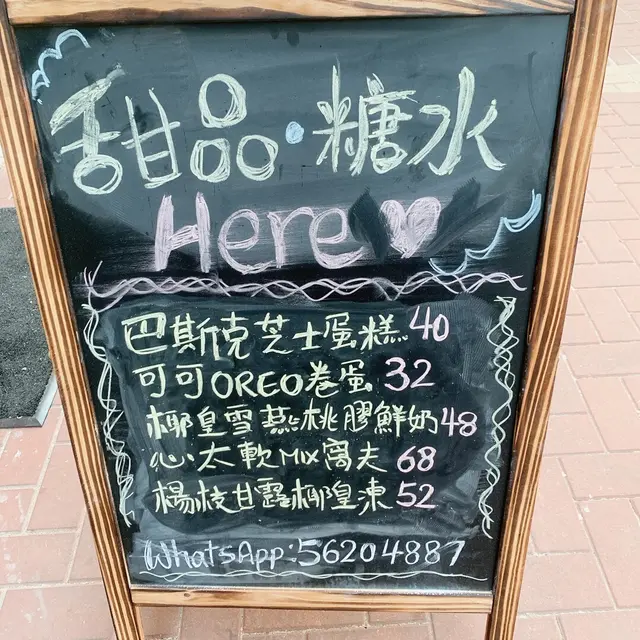 甜品·糖水
Here
巴斯克芝士蛋糕 40
可可OREO卷蛋 32
椰皇雪燕桃膠鮮奶 48
心太軟MIX窩夫 68
楊枝甘露椰皇凍 52
WhatsApp:56204887